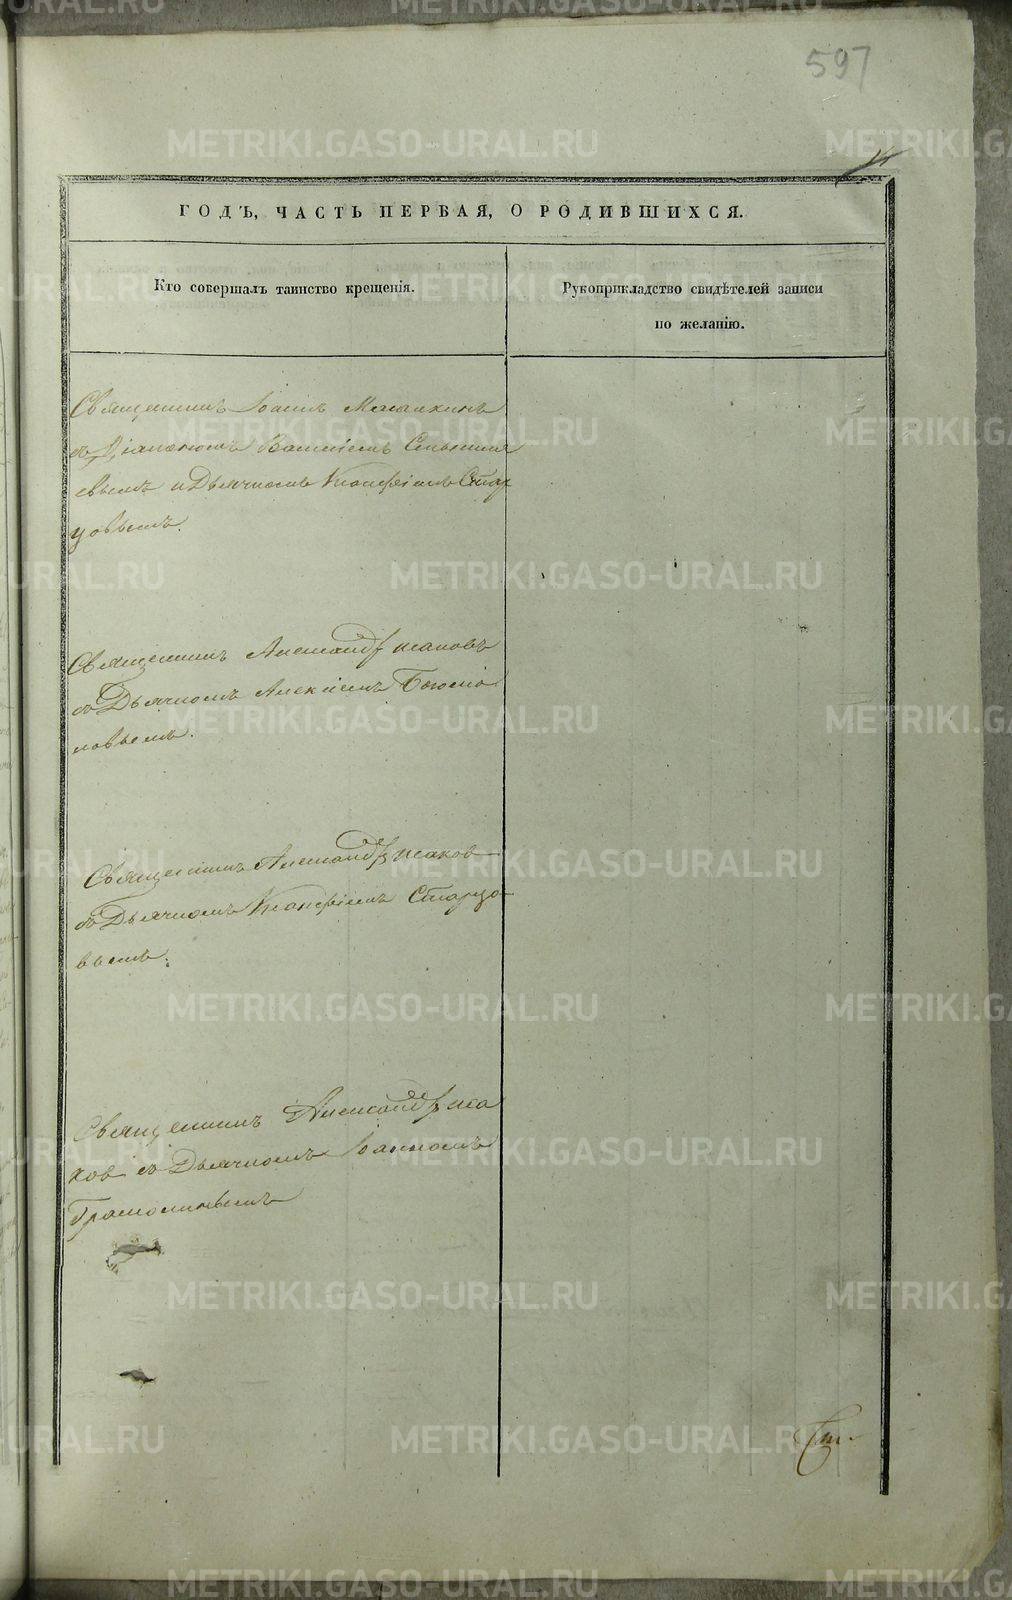 597
ГОДЪ, ЧАСТЬ ПЕРВАЯ, О РОДИВШИХСЯ.
Кто совершалъ таинство крещенія.
Рукоприкладство свидѣтелей записи
по желанію.
Священникъ Іоаннъ
съ Діакономъ Василіемъ
евымъ и Дьячкомъ Ксанфіемъ Стар
цовымъ.
Священникъ Александръ Исаковъ
съ Дьячкомъ Алексіемъ Богомо
ловымъ.
Священникъ Александръ Исаковъ
съ Дьячкомъ Ксанфіемъ Старцо
вымъ.
Священникъ Александръ Иса
ковъ съ Дьячкомъ Іоанномъ
METRIKI.GASO-URAL.RU